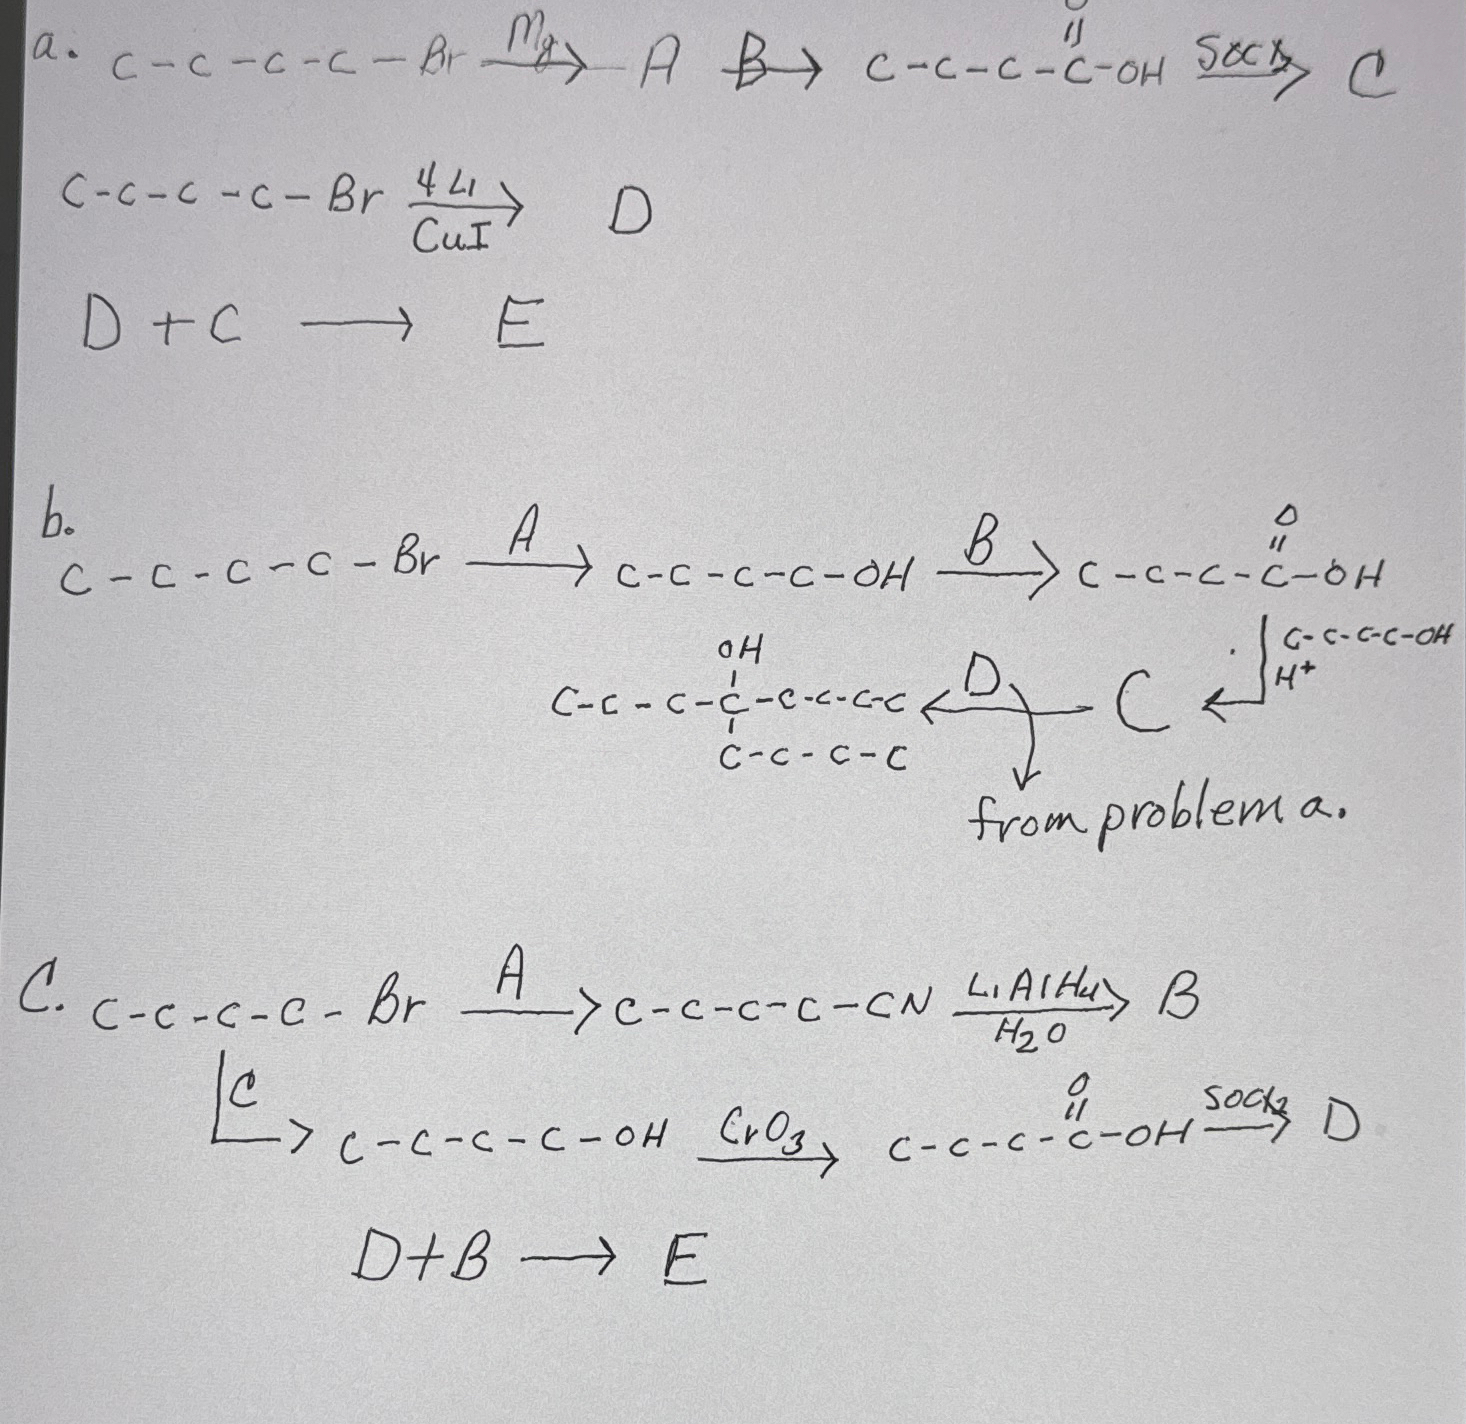 a. C-C-C-C-Br Mg→ A B→ C-C-C-C-OH SOCl2→ C
O
||
C-C-C-C-Br 4 Li→ D
CuI
D + C → E
b.
C-C-C-C-Br A→ C-C-C-C-OH B→ C-C-C-C-OH
O
||
C-C-C-C-OH
H+
OH
C-C-C-C-C-C-C-C ← D C ←
C-C-C-C
from problem a.
C. C-C-C-C-Br A→ C-C-C-C-CN LiAlH4→ B
H2O
C→ C-C-C-C-OH CrO3→ C-C-C-C-OH SOCl2→ D
O
||
D+B → E